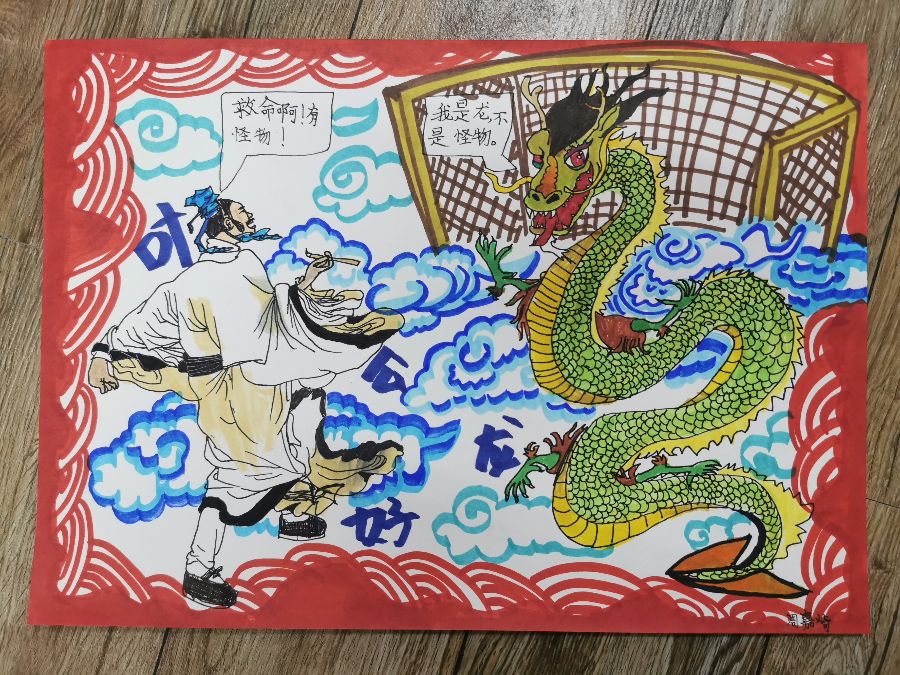 救命啊!有
怪物!
我是龙不
是怪物。
叶
公
好
龙